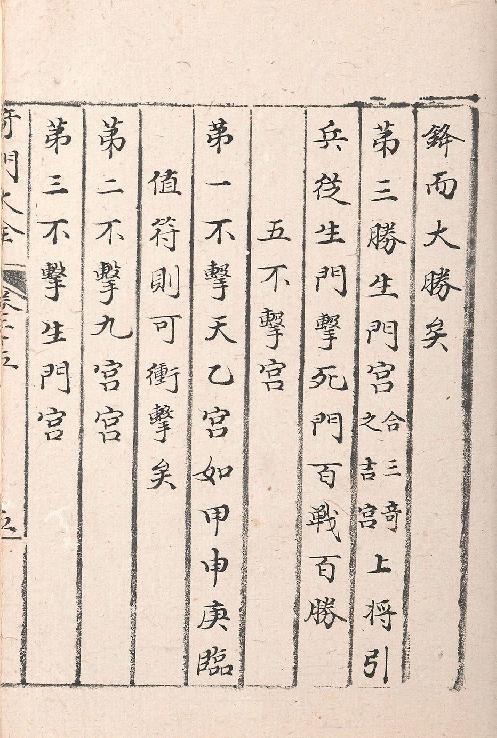 鋒而大勝矣
第三勝生門宮合三奇之吉宮上将引
兵從生門擊死門百戰百勝
五不擊宮
第一不擊天乙宮如甲申庚臨
值符則可衝擊矣
第二不擊九宮宮
第三不擊生門宮
奇門大全